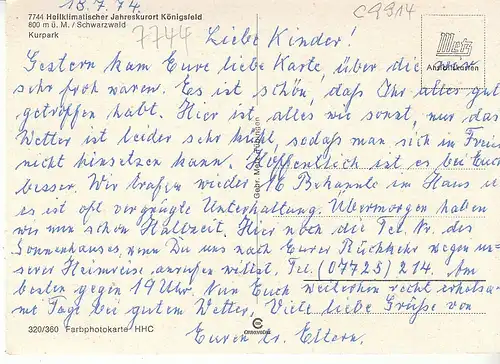 13.7.74.
7744 Heilklimatischer Jahreskurort Königsfeld
800 m ü. M. / Schwarzwald
Kurpark
7744
C9914
Metz
Ansichtskarten
Liebe Kinder!
Gestern kam Eure liebe Karte, über die wir
sehr froh waren. Es ist schön, daß Ihr alles gut
getroffen habt. Hier ist alles wie sonst, nur das
Wetter ist leider sehr kühl, sodaß man sich im Freien
nicht hinsetzen kann. Hoffentlich ist es bei Euch
besser. Wir trafen wieder 16 Bekannte im Haus u.
es ist oft vergnügte Unterhaltung. Übermorgen haben
wir nun schon Halbzeit. Hier noch die Tel. Nr. des
Sonnenhauses, wenn Du uns nach Eurer Rückkehr wegen un-
serer Heimreise anrufen willst. Tel. (07725) 214. Am
besten gegen 19 Uhr. Nun Euch weiterhin recht erholsa-
me Tage bei gutem Wetter. Viele liebe Grüße von
Euren lr. Eltern.
Gebr. Metz, Tübingen
320/360 Farbphotokarte HHC